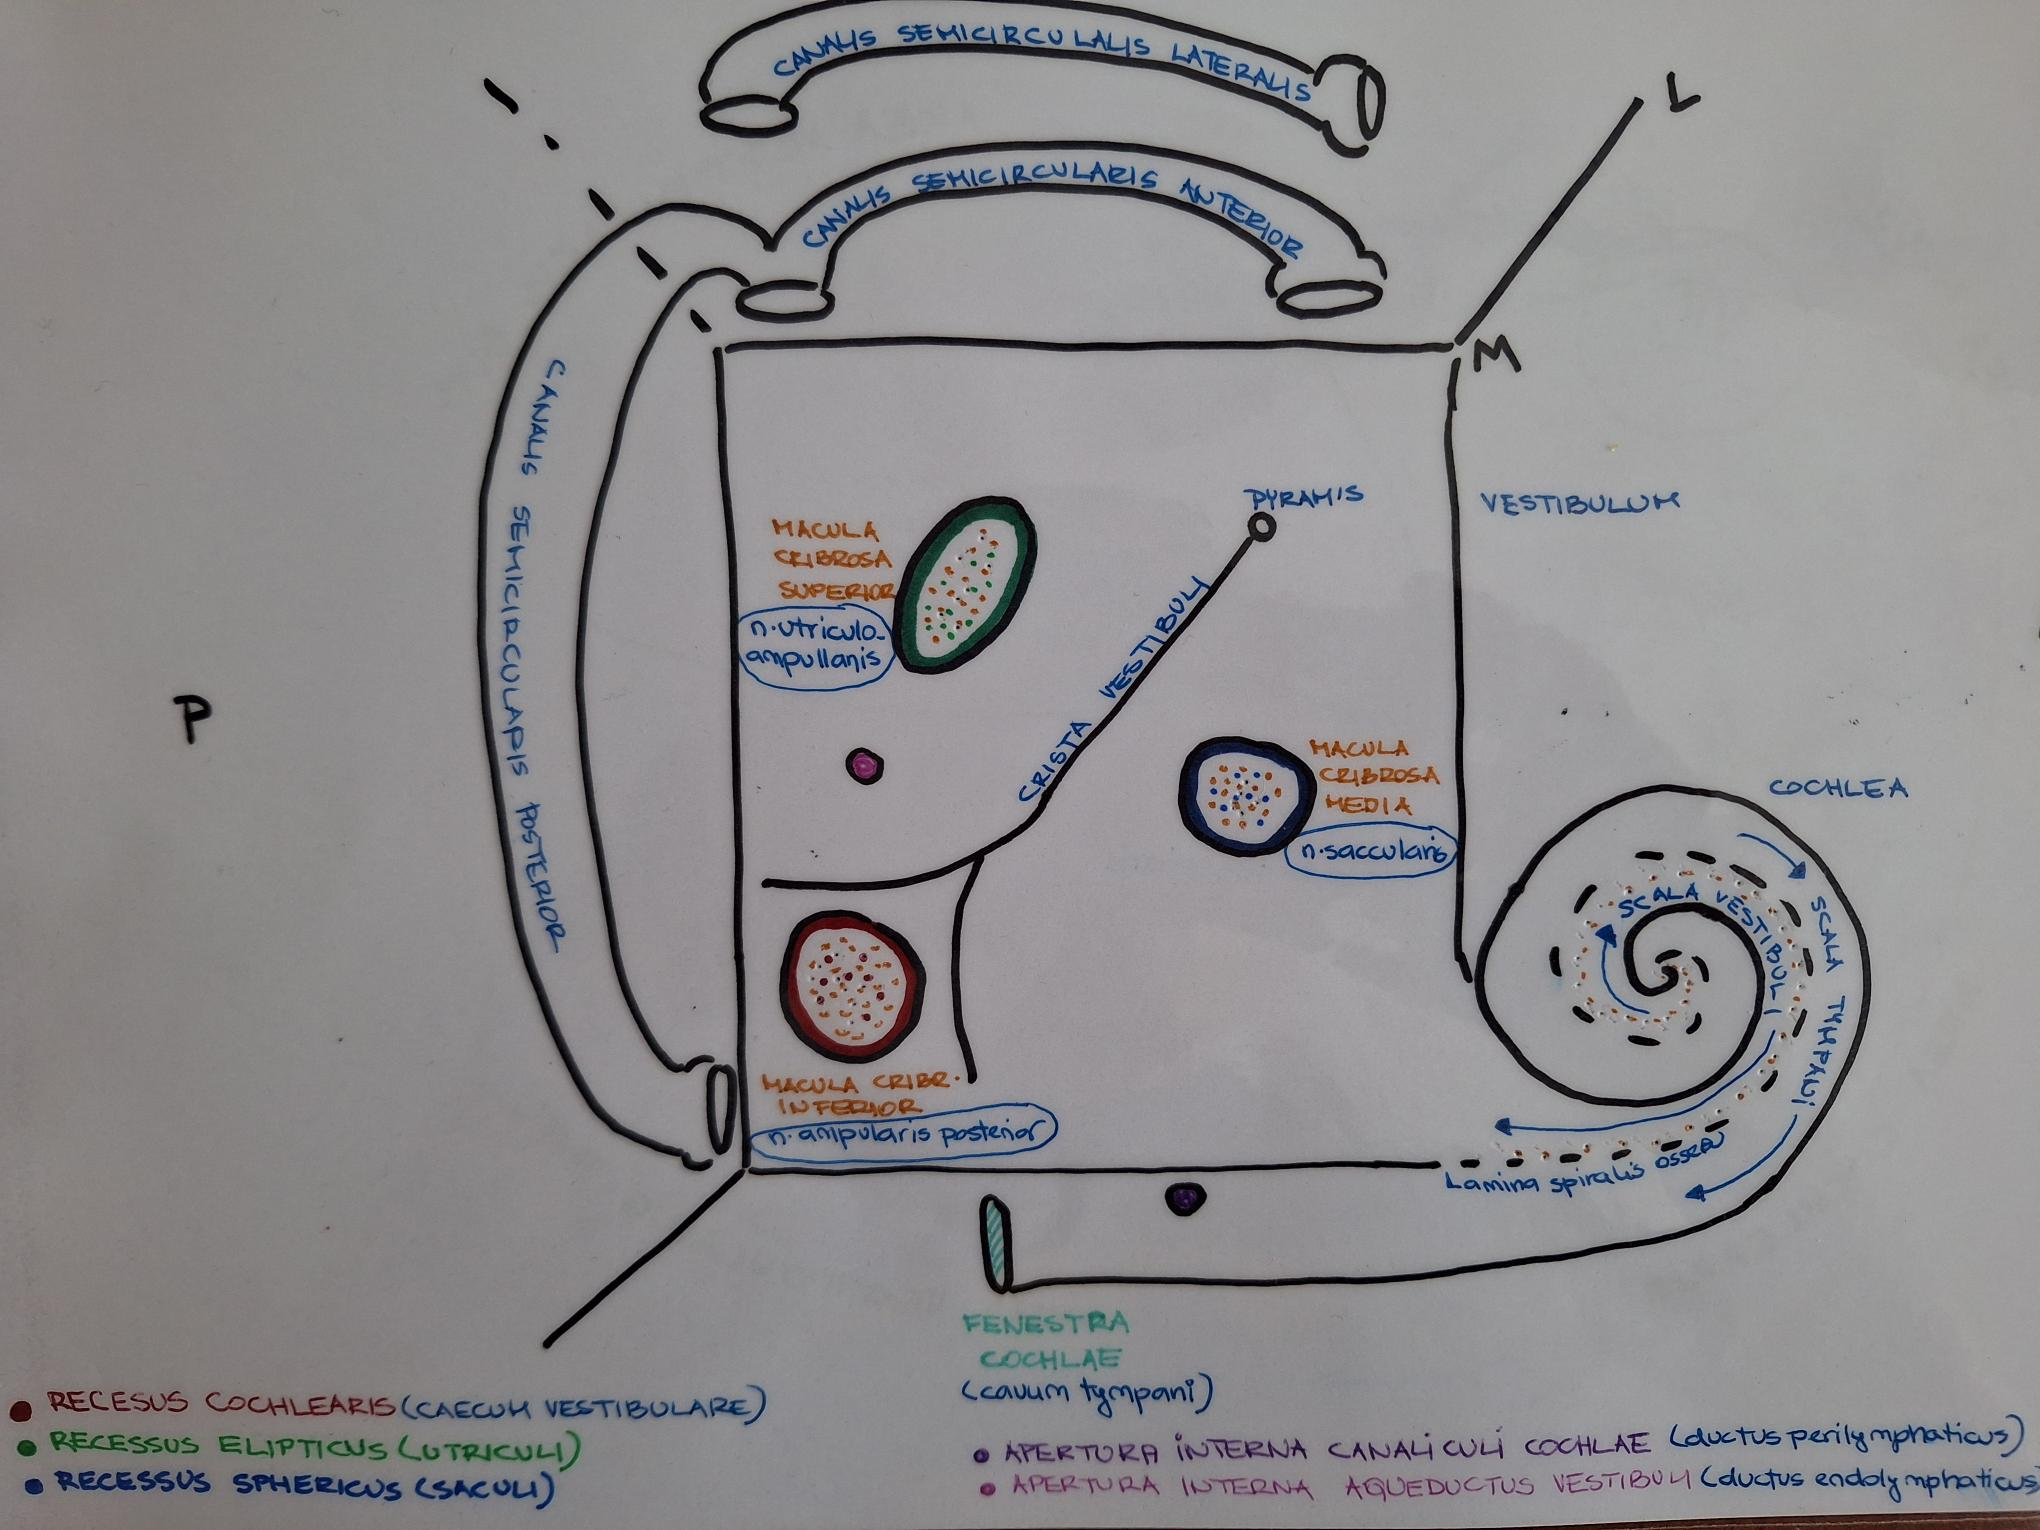 CANALIS SEMICIRCULALIS LATERALIS
L
CANALIS SEMICIRCULARIS ANTERIOR
M
CANALIS SEMICIRCULARIS POSTERIOR
P
PYRAMIS
VESTIBULUM
MACULA
CRIBROSA
SUPERIOR
n.utriculo-
ampullaris
CRISTA VESTIBULI
MACULA
CRIBROSA
MEDIA
n.saccularis
COCHLEA
SCALA VESTIBULI
SCALA TYMPANI
MACULA CRIBR.
INFERIOR
n. ampularis posterior
Lamina spiralis ossea
FENESTRA
COCHLAE
(cavum tympani)
RECESUS COCHLEARIS (CAECUM VESTIBULARE)
RECESSUS ELIPTICUS (UTRICULI)
RECESSUS SPHERICUS (SACULI)
APERTURA INTERNA CANALICULI COCHLAE (ductus perilymphaticus)
APERTURA INTERNA AQUEDUCTUS VESTIBULI (ductus endolymphaticus)